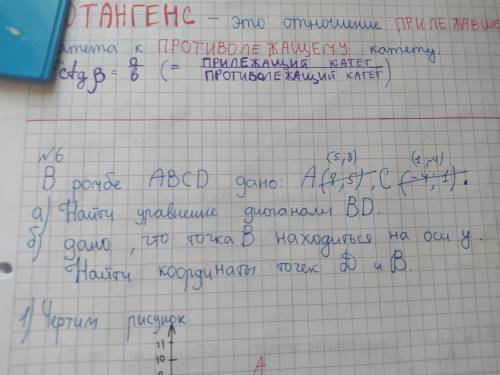 ОТАНГЕНС – это отношение ПРИЛЕЖАЩЕ
катета к ПРОТИВОЛЕЖАЩЕМУ катету.
ctg β = a/b (= ПРИЛЕЖАЩИЙ КАТЕТ / ПРОТИВОЛЕЖАЩИЙ КАТЕТ)
№6
(5;8) (1;-4)
В ромбе ABCD дано: A(8;5), C(-4;1).
а) Найти уравнение диоганали BD.
б) дано, что точка B находиться на оси y.
Найти координаты точек D и B.
1) Чертим рисунок
11
10
A